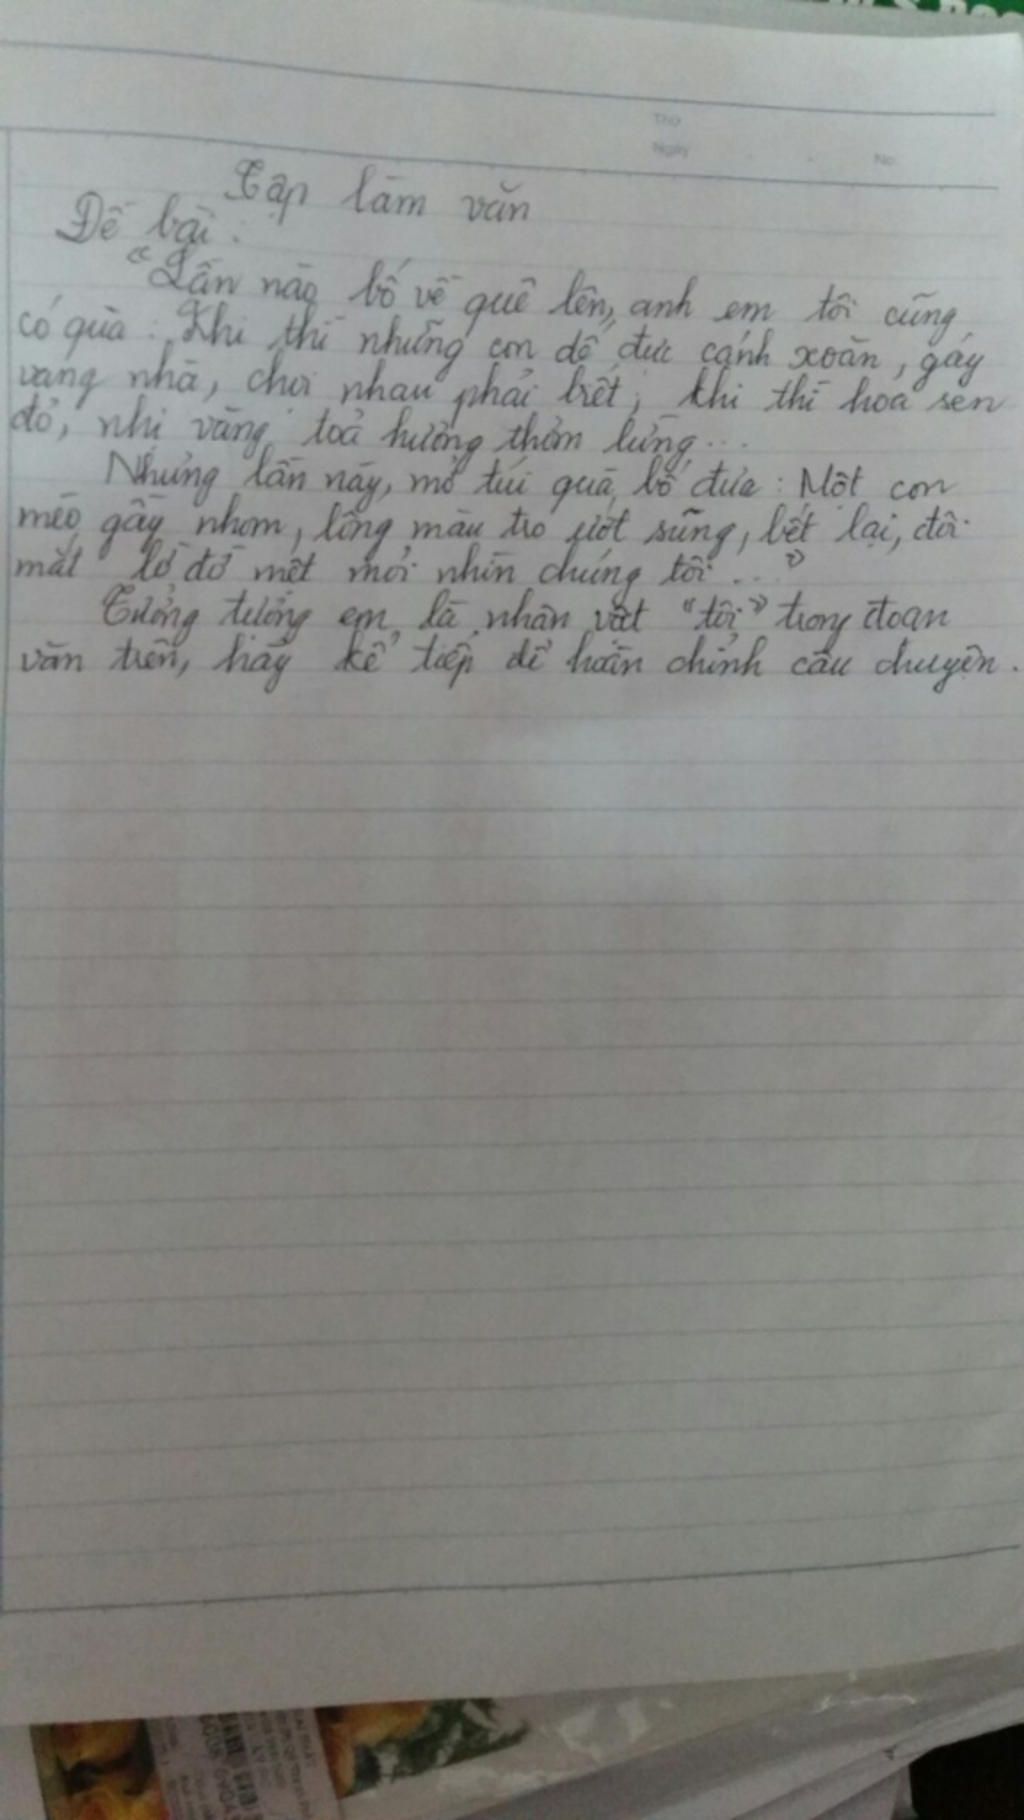 Thứ
Ngày . . No.
Tập làm văn
Đề bài :
"Lần nào bố về quê lên, anh em tôi cũng
có quà : Khi thì những con dế đực cánh xoăn, gáy
vang nhà, chọi nhau phải biết ; khi thì hoa sen
đỏ, nhị vàng toả hương thơm lừng...
Nhưng lần này, mở túi quà bố đưa : Một con
mèo gầy nhom, lông màu tro ướt sũng, bết lại, đôi
mắt lờ đờ mệt mỏi nhìn chúng tôi ..."
Tưởng tượng em là nhân vật "tôi" trong đoạn
văn trên, hãy kể tiếp để hoàn chỉnh câu chuyện.